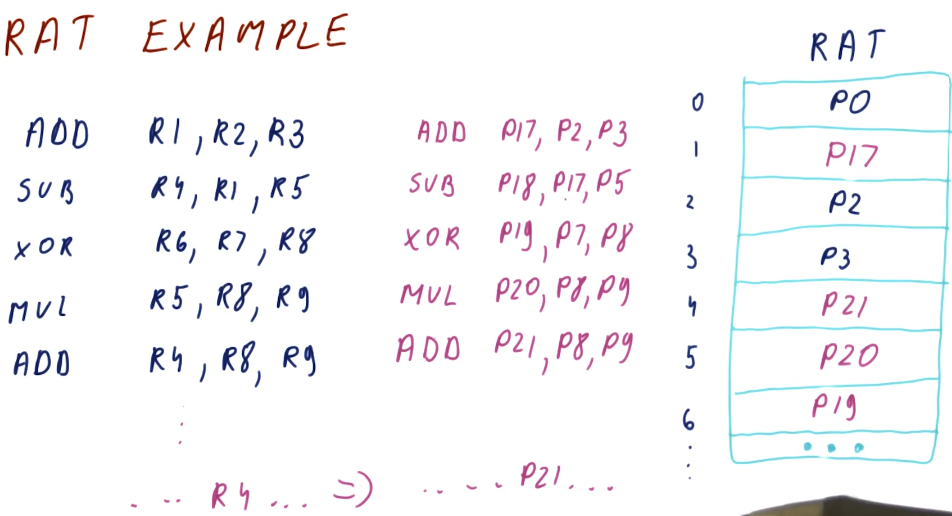 RAT EXAMPLE
RAT
ADD R1, R2, R3
SUB R4, R1, R5
XOR R6, R7, R8
MUL R5, R8, R9
ADD R4, R8, R9
ADD P17, P2, P3
SUB P18, P17, P5
XOR P19, P7, P8
MUL P20, P8, P9
ADD P21, P8, P9
0 P0
1 P17
2 P2
3 P3
4 P21
5 P20
6 P19
⋮ ...
... R4 ... => .... P21...